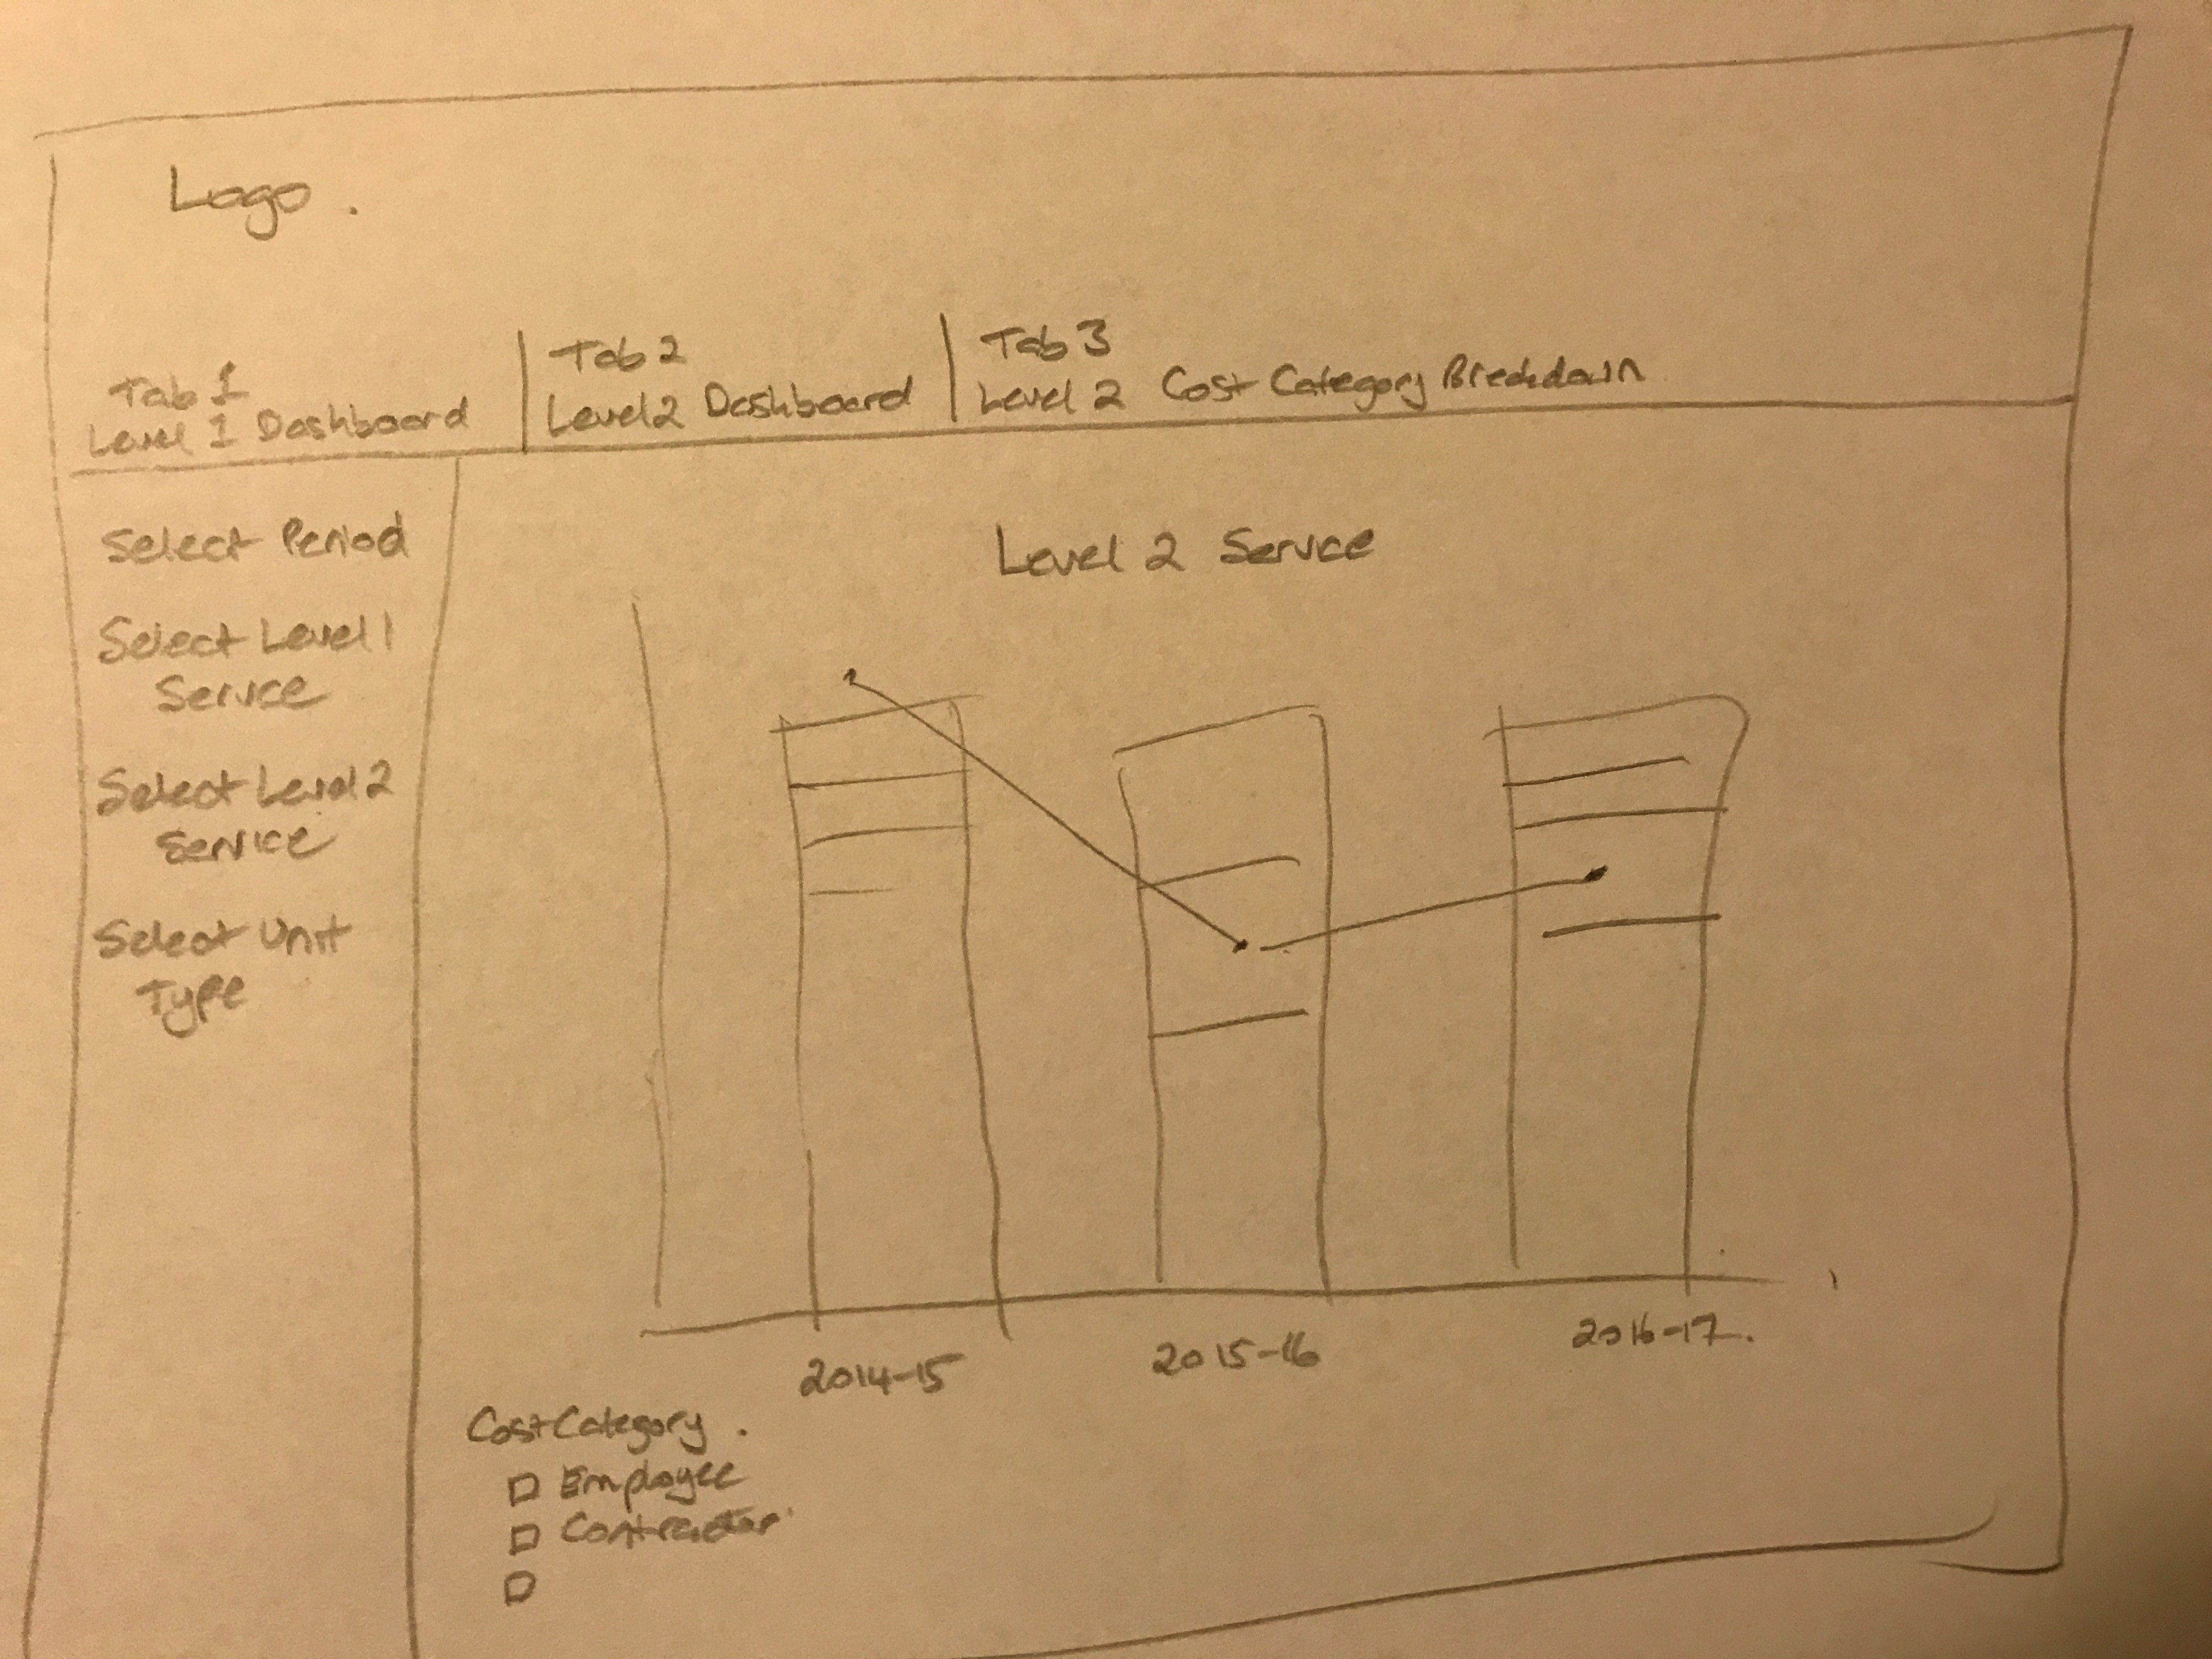 Logo.
Tab 1
Level 1 Dashboard
Tab 2
Level 2 Dashboard
Tab 3
Level 2 Cost Category Breakdown
Select Period
Select Level 1
Service
Select Level 2
Service
Select Unit
Type
Level 2 Service
2014-15
2015-16
2016-17.
Cost Category.
Employee
Contractor